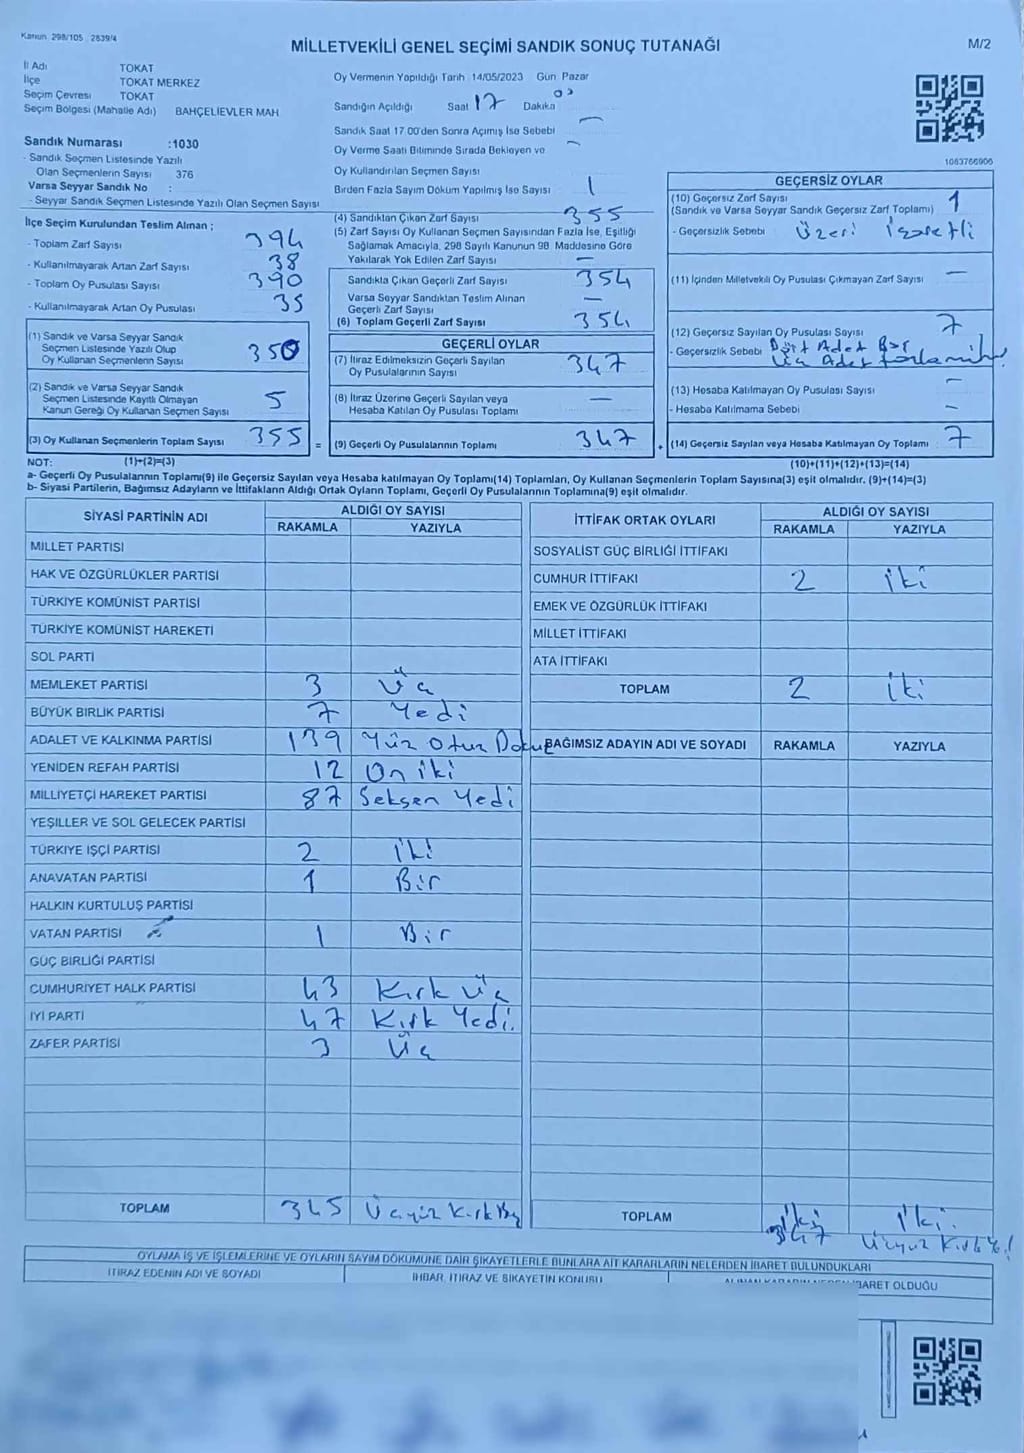 Kanun 298/105 2839/4
MİLLETVEKİLİ GENEL SEÇİMİ SANDIK SONUÇ TUTANAĞI
M/2
İl Adı TOKAT
İlçe TOKAT MERKEZ
Seçim Çevresi TOKAT
Seçim Bölgesi (Mahalle Adı) BAHÇELİEVLER MAH
Sandık Numarası :1030
- Sandık Seçmen Listesinde Yazılı
Olan Seçmenlerin Sayısı 376
Varsa Seyyar Sandık No :
- Seyyar Sandık Seçmen Listesinde Yazılı Olan Seçmen Sayısı
Oy Vermenin Yapıldığı Tarih 14/05/2023 Gün Pazar
Sandığın Açıldığı Saat 17 Dakika 00
Sandık Saat 17.00'den Sonra Açımış İse Sebebi —
Oy Verme Saati Bitiminde Sırada Bekleyen ve —
Oy Kullandırılan Seçmen Sayısı
Birden Fazla Sayım Döküm Yapılmış İse Sayısı 1
1063766906
İlçe Seçim Kurulundan Teslim Alınan ;
- Toplam Zarf Sayısı 394
- Kullanılmayarak Artan Zarf Sayısı 38
- Toplam Oy Pusulası Sayısı 390
- Kullanılmayarak Artan Oy Pusulası 35
(1) Sandık ve Varsa Seyyar Sandık
Seçmen Listesinde Yazılı Olup
Oy Kullanan Seçmenlerin Sayısı 350
(2) Sandık ve Varsa Seyyar Sandık
Seçmen Listesinde Kayıtlı Olmayan
Kanun Gereği Oy Kullanan Seçmen Sayısı 5
(3) Oy Kullanan Seçmenlerin Toplam Sayısı 355
(4) Sandıktan Çıkan Zarf Sayısı 355
(5) Zarf Sayısı Oy Kullanan Seçmen Sayısından Fazla İse, Eşitliği
Sağlamak Amacıyla, 298 Sayılı Kanunun 98 Maddesine Göre
Yakılarak Yok Edilen Zarf Sayısı —
Sandıkta Çıkan Geçerli Zarf Sayısı 354
Varsa Seyyar Sandıktan Teslim Alınan
Geçerli Zarf Sayısı —
(6) Toplam Geçerli Zarf Sayısı 354
GEÇERLİ OYLAR
(7) İtiraz Edilmeksizin Geçerli Sayılan
Oy Pusulalarının Sayısı 347
(8) İtiraz Üzerine Geçerli Sayılan veya
Hesaba Katılan Oy Pusulası Toplamı —
= (9) Geçerli Oy Pusulalarının Toplamı 347
GEÇERSİZ OYLAR
(10) Geçersiz Zarf Sayısı
(Sandık ve Varsa Seyyar Sandık Geçersiz Zarf Toplamı) 1
- Geçersizlik Sebebi Üzeri İşaretli
(11) İçinden Milletvekili Oy Pusulası Çıkmayan Zarf Sayısı —
(12) Geçersiz Sayılan Oy Pusulası Sayısı 7
- Geçersizlik Sebebi Dört Adet Boş
Üç Adet
(13) Hesaba Katılmayan Oy Pusulası Sayısı —
- Hesaba Katılmama Sebebi —
+ (14) Geçersiz Sayılan veya Hesaba Katılmayan Oy Toplamı 7
NOT: (1)+(2)=(3)
(10)+(11)+(12)+(13)=(14)
a- Geçerli Oy Pusulalarının Toplamı(9) ile Geçersiz Sayılan veya Hesaba katılmayan Oy Toplamı(14) Toplamları, Oy Kullanan Seçmenlerin Toplam Sayısına(3) eşit olmalıdır. (9)+(14)=(3)
b- Siyasi Partilerin, Bağımsız Adayların ve İttifakların Aldığı Ortak Oyların Toplamı, Geçerli Oy Pusulalarının Toplamına(9) eşit olmalıdır.
SİYASİ PARTİNİN ADI
ALDIĞI OY SAYISI
RAKAMLA YAZIYLA
MİLLET PARTİSİ
HAK VE ÖZGÜRLÜKLER PARTİSİ
TÜRKİYE KOMÜNİST PARTİSİ
TÜRKİYE KOMÜNİST HAREKETİ
SOL PARTİ
MEMLEKET PARTİSİ 3 Üç
BÜYÜK BİRLİK PARTİSİ 7 Yedi
ADALET VE KALKINMA PARTİSİ 139 Yüz Otuz Dokuz
YENİDEN REFAH PARTİSİ 12 On iki
MİLLİYETÇİ HAREKET PARTİSİ 87 Seksen Yedi
YEŞİLLER VE SOL GELECEK PARTİSİ
TÜRKİYE İŞÇİ PARTİSİ 2 İki
ANAVATAN PARTİSİ 1 Bir
HALKIN KURTULUŞ PARTİSİ
VATAN PARTİSİ 1 Bir
GÜÇ BİRLİĞİ PARTİSİ
CUMHURİYET HALK PARTİSİ 43 Kırk Üç
İYİ PARTİ 47 Kırk Yedi.
ZAFER PARTİSİ 3 Üç
TOPLAM 345 Üçyüz Kırk Beş
İTTİFAK ORTAK OYLARI
ALDIĞI OY SAYISI
RAKAMLA YAZIYLA
SOSYALİST GÜÇ BİRLİĞİ İTTİFAKI
CUMHUR İTTİFAKI 2 İki
EMEK VE ÖZGÜRLÜK İTTİFAKI
MİLLET İTTİFAKI
ATA İTTİFAKI
TOPLAM 2 İki
BAĞIMSIZ ADAYIN ADI VE SOYADI RAKAMLA YAZIYLA
TOPLAM İki İki.
347 Üçyüz
OYLAMA İŞ VE İŞLEMLERİNE VE OYLARIN SAYIM DÖKÜMÜNE DAİR ŞİKAYETLERLE BUNLARA AİT KARARLARIN NELERDEN İBARET BULUNDUKLARI
İTİRAZ EDENİN ADI VE SOYADI
İHBAR, İTİRAZ VE ŞİKAYETİN KONUSU
İBARET OLDUĞU